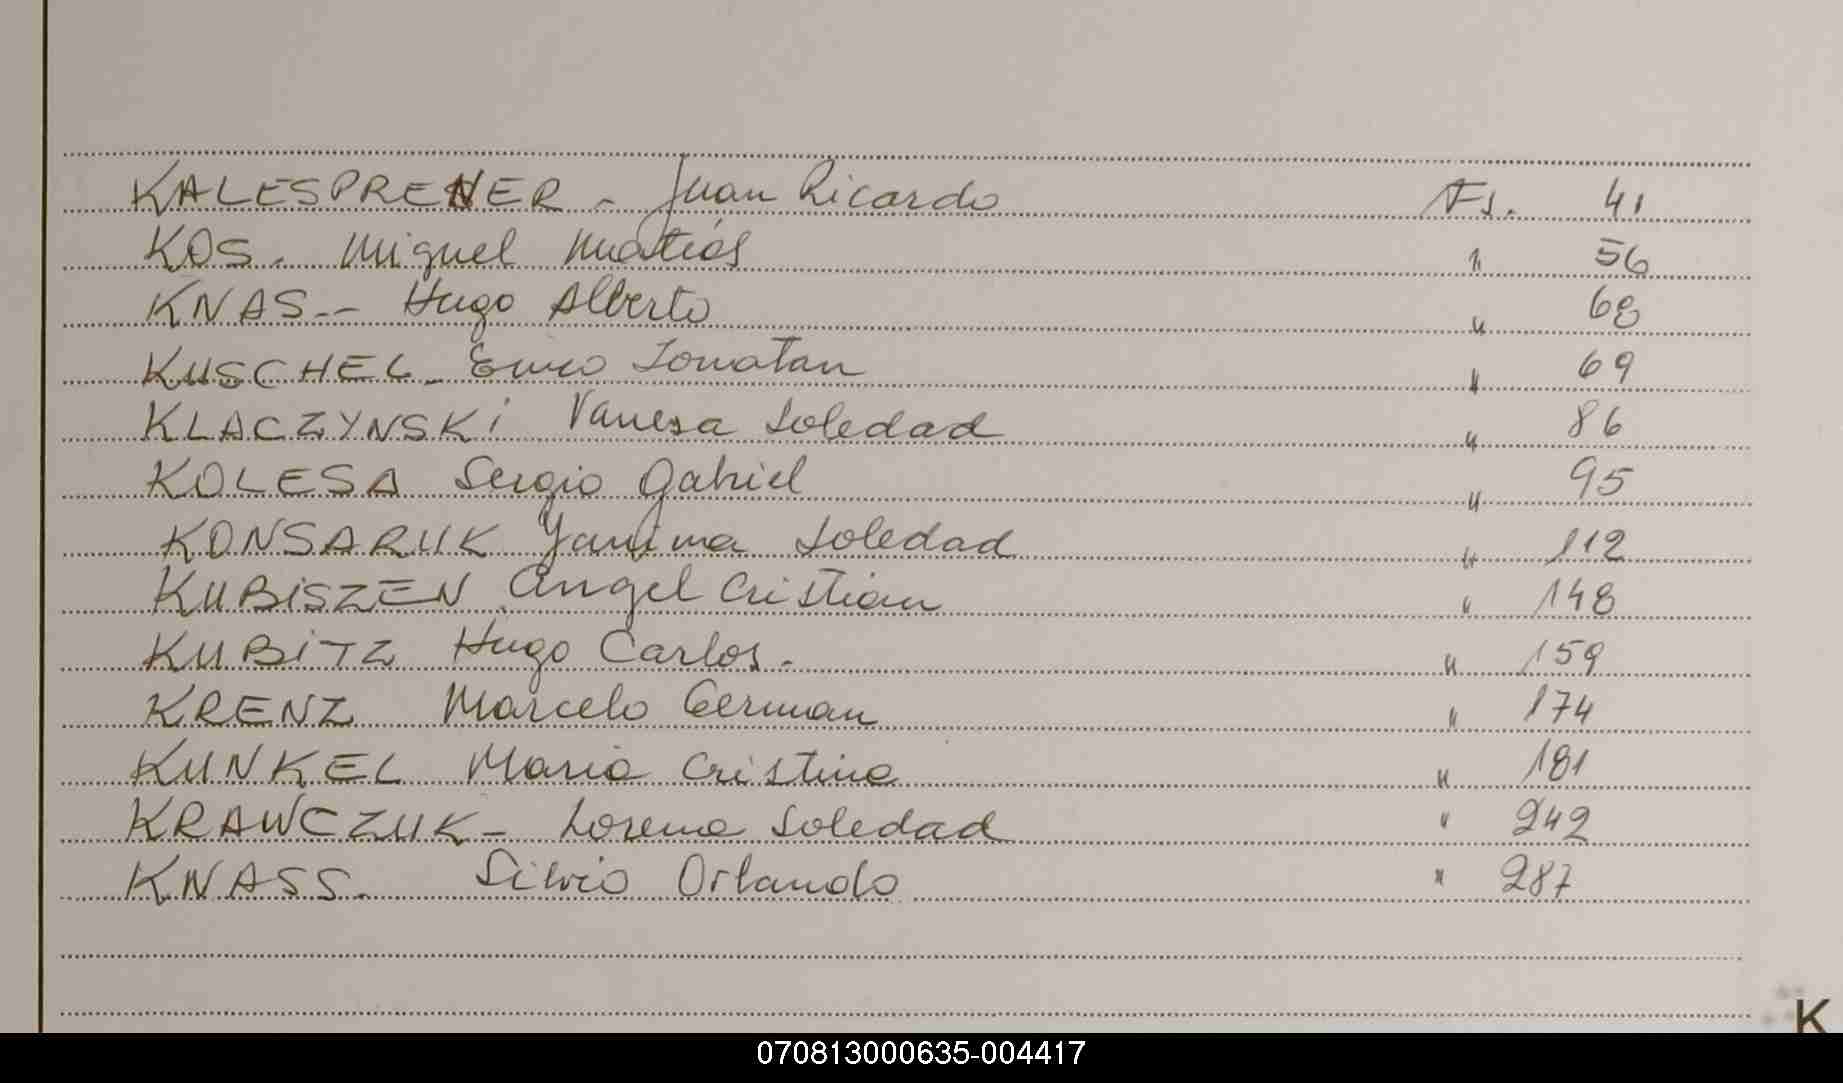 KALESPRENER - Juan Ricardo Fs. 41
KOS. Miguel Matias " 56
KNAS -- Hugo Alberto " 68
KUSCHEL - Jonatan " 69
KLACZYNSKi Vanesa Soledad " 86
KOLESA Sergio Gabriel " 95
KONSARUK Yanina Soledad " 112
KUBiSZEN Angel Cristian " 148
KUBiTZ Hugo Carlos. " 159
KRENZ Marcelo German " 174
KUNKEL Maria Cristina " 181
KRAWCZUK - Lorena Soledad " 242
KNASS. Silvio Orlando " 287
K
070813000635-004417